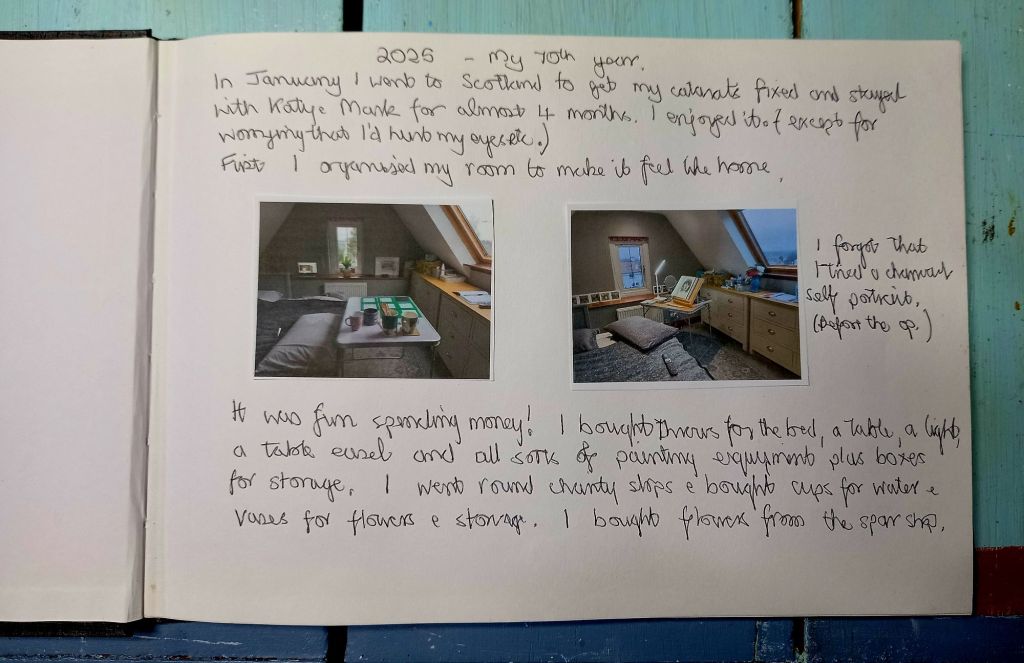 2025 - My 70th year.
In January I went to Scotland to get my cataracts fixed and stayed
with Katy e Mark for almost 4 months. I enjoyed it. (except for
worrying that I'd hurt my eyes etc.)
First I organised my room to make it feel like home.
I forgot that
I tried a charcoal
self portrait.
(Before the op.)
It was fun spending money! I bought throws for the bed, a table, a light,
a table easel and all sorts of painting equipment plus boxes
for storage. I went round charity shops e bought cups for water e
vases for flowers e storage. I bought flowers from the spar shop.